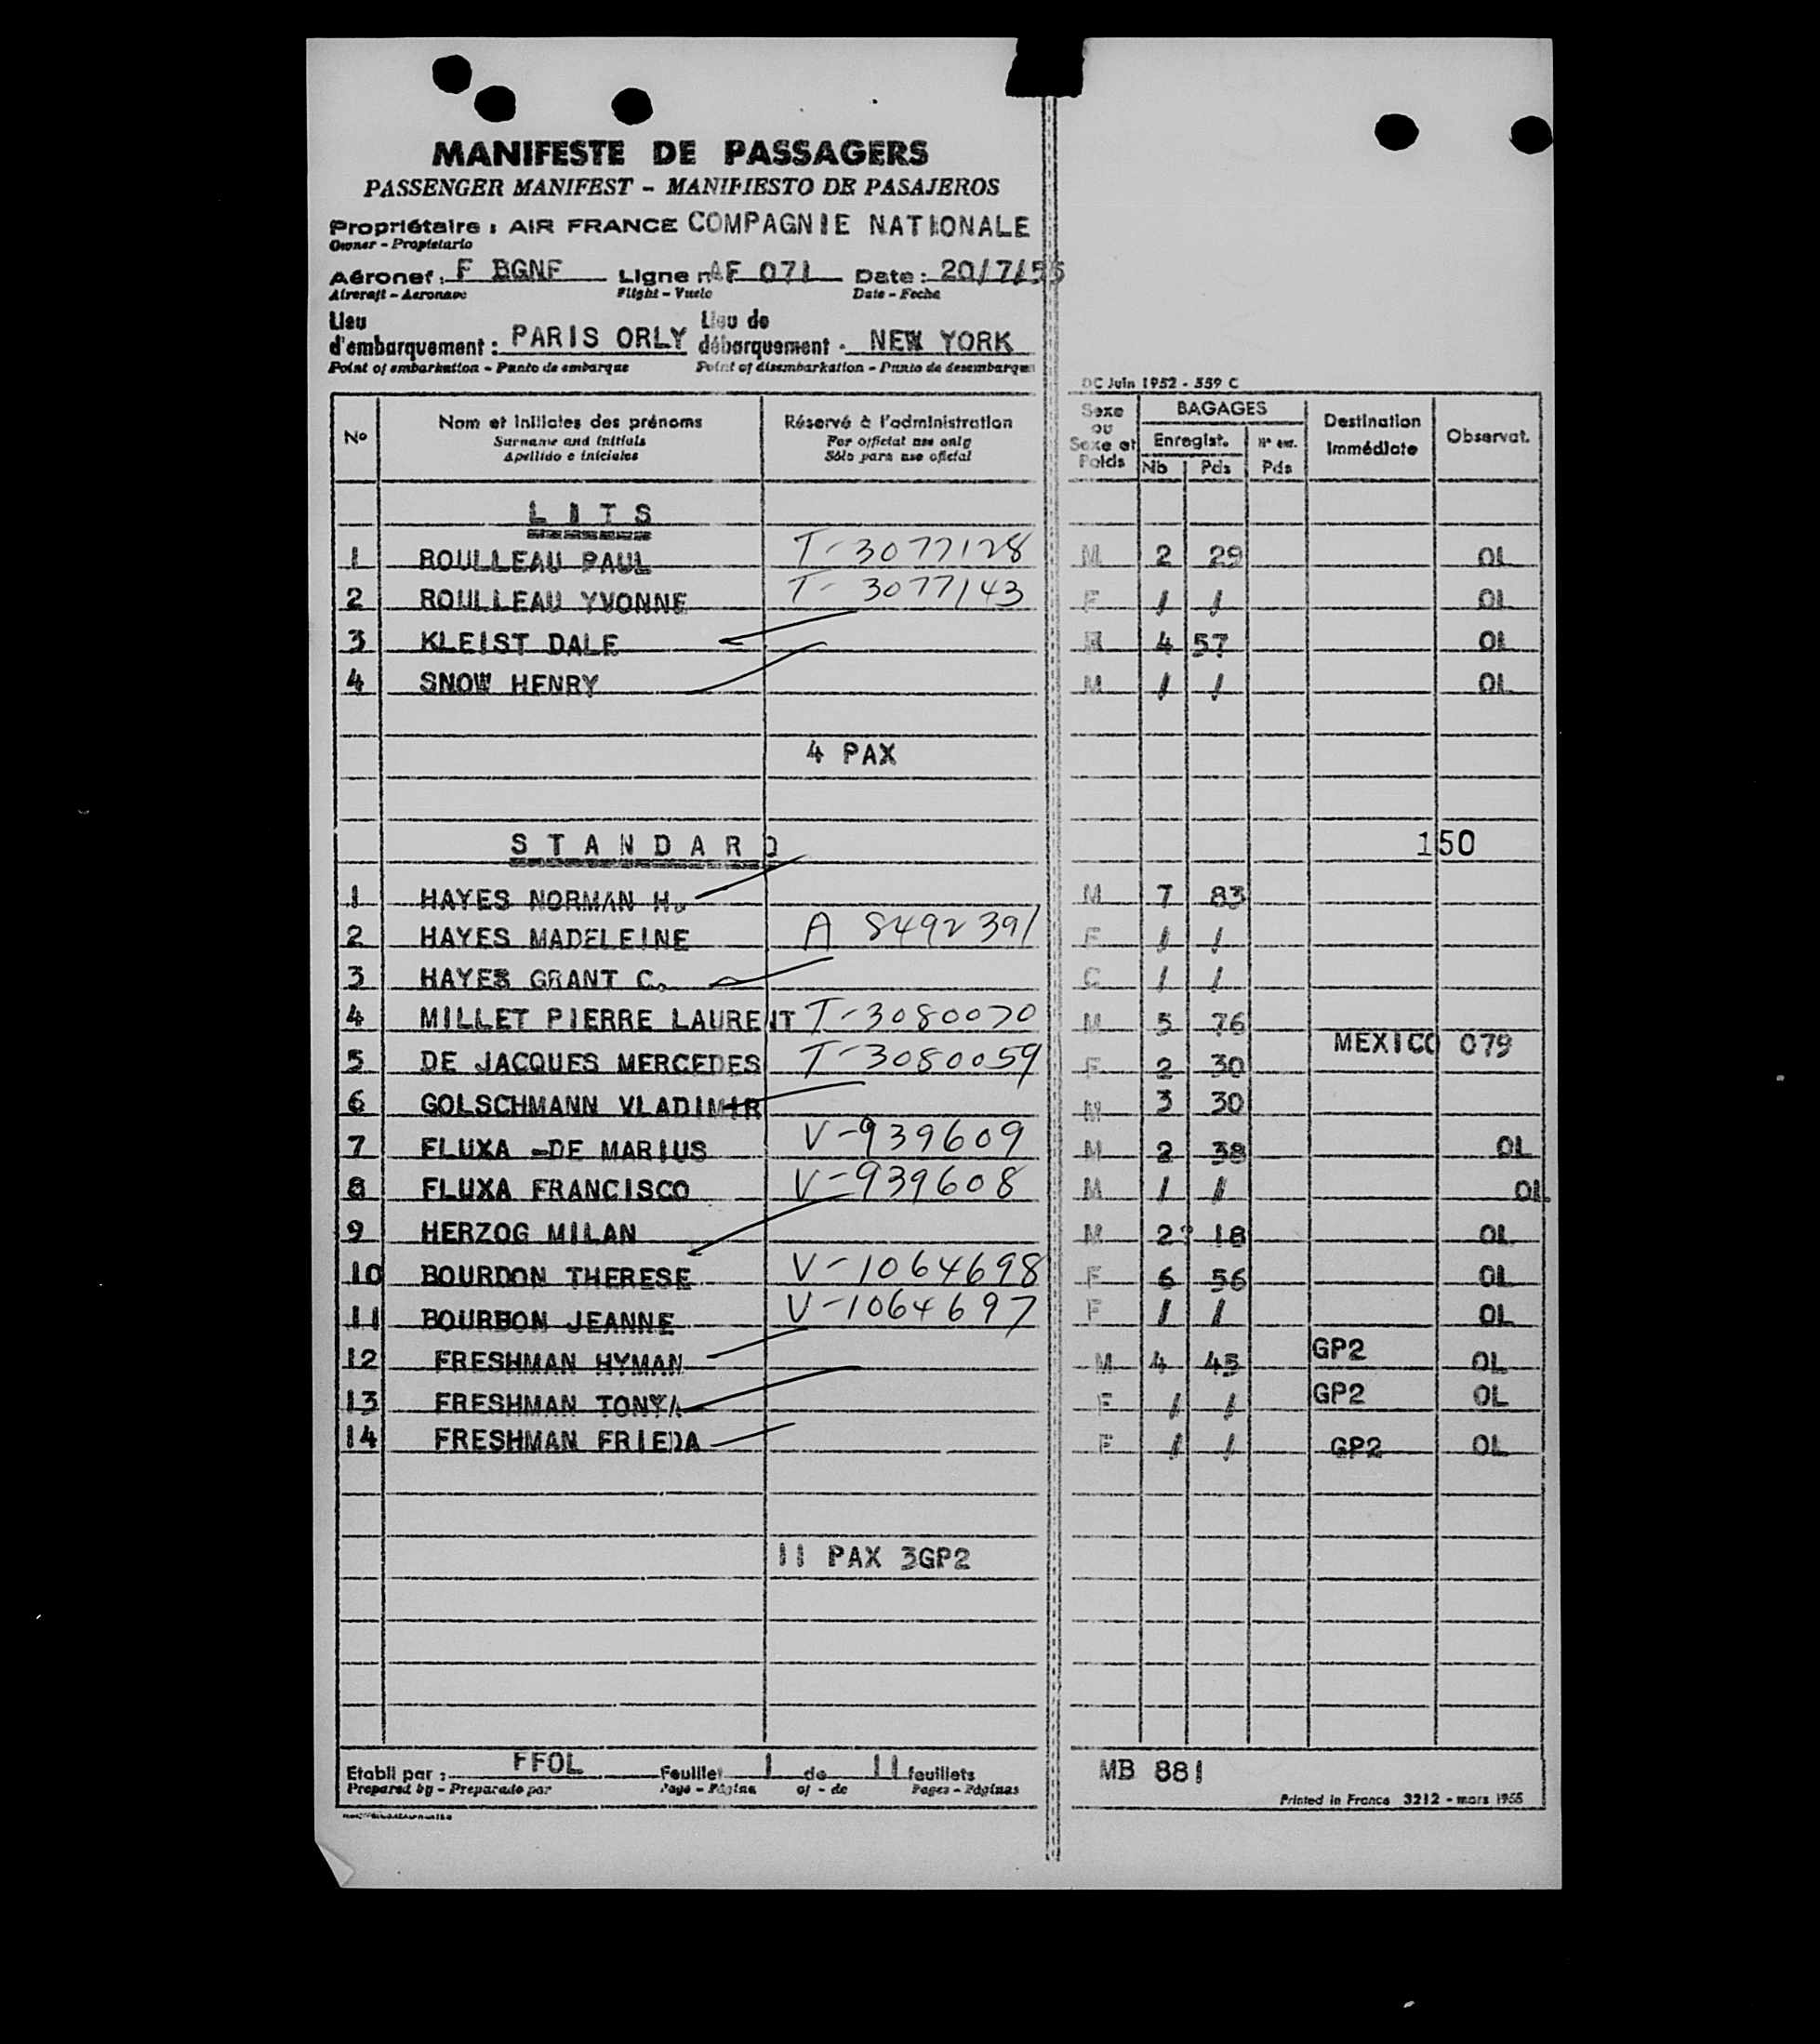 MANIFESTE DE PASSAGERS
PASSENGER MANIFEST - MANIFIESTO DE PASAJEROS
Propriétaire : AIR FRANCE COMPAGNIE NATIONALE
Owner - Propietario
Aéronef : F BGNF Ligne n AF 071 Date : 20/7/55
Aircraft - Aeronave Flight - Vuelo Date - Fecha
Lieu d'embarquement : PARIS ORLY Lieu de débarquement : NEW YORK
Point of embarkation - Punto de embarque Point of disembarkation - Punto de desembarque
DC Juin 1952 - 359 C
No Nom et initiales des prénoms Réservé à l'administration Sexe ou Sexe et Poids BAGAGES Destination Immédiate Observat.
Surname and initials For official use only Enregist.
Apellido e iniciales Sólo para uso oficial Nb Pds Pds
LITS
1 ROULLEAU PAUL T-3077128 M 2 29 OL
2 ROULLEAU YVONNE T-3077143 F / / OL
3 KLEIST DALE 4 57 OL
4 SNOW HENRY M / / OL
4 PAX
STANDARD 150
1 HAYES NORMAN H. M 7 83
2 HAYES MADELEINE A 8492391 F / /
3 HAYES GRANT C. C / /
4 MILLET PIERRE LAURENT T-3080070 M 5 76
MEXICO 079
5 DE JACQUES MERCEDES T-3080059 F 2 30
6 GOLSCHMANN VLADIMIR M 3 30
7 FLUXA -DE MARIUS V-939609 M 2 38 OL
8 FLUXA FRANCISCO V-939608 M / / OL
9 HERZOG MILAN M 2 18 OL
10 BOURDON THERESE V-1064698 F 6 56 OL
11 BOURDON JEANNE V-1064697 F / / OL
12 FRESHMAN HYMAN M 4 45 GP2 OL
13 FRESHMAN TONYA F / / GP2 OL
14 FRESHMAN FRIEDA F / / GP2 OL
11 PAX 3GP2
Etabli par : FFOL Feuillet 1 de 11 feuillets MB 881
Prepared by - Preparado por Page - Página of - de Pages - Páginas
Printed in France 3212 - mars 1955